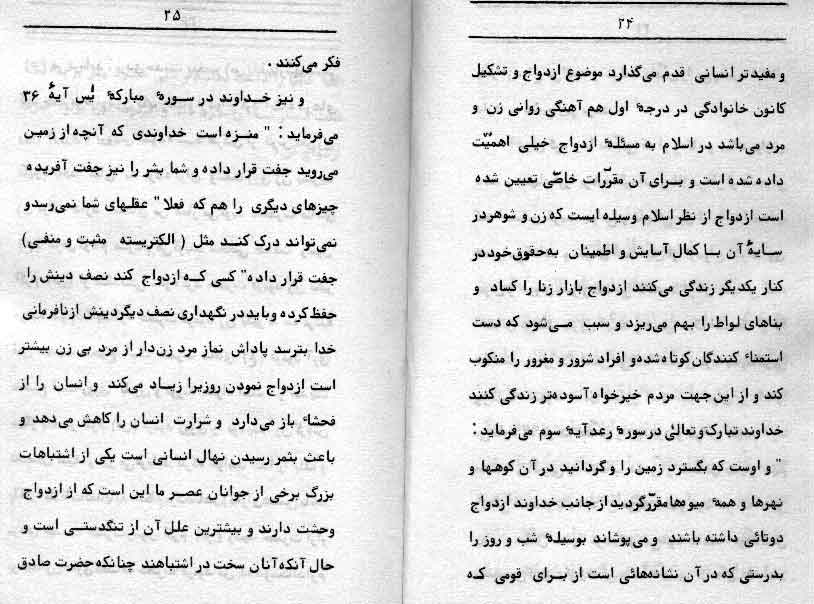 ۲۴
و مفیدتر انسانی قدم می‌گذارد موضوع ازدواج و تشکیل
کانون خانوادگی در درجهٔ اول هم آهنگی روانی زن و
مرد می‌باشد در اسلام به مسئلهٔ ازدواج خیلی اهمیّت
داده شده است و برای آن مقرّرات خاصّی تعیین شده
است ازدواج از نظر اسلام وسیله ایست که زن و شوهر در
سایهٔ آن با کمال آسایش و اطمینان به‌حقوق خود در
کنار یکدیگر زندگی می‌کنند ازدواج بازار زنا را کساد و
بناهای لواط را بهم می‌ریزد و سبب می‌شود که دست
استمناء کنندگان کوتاه شده و افراد شرور و مغرور را منکوب
کند و از این جهت مردم خیرخواه آسوده‌تر زندگی کنند
خداوند تبارک و تعالیٰ در سورهٔ رعد آیهٔ سوم می‌فرماید :
" و اوست که بگسترد زمین را و گردانید در آن کوهها و
نهرها و همهٔ میوه‌ها مقرّر گردید از جانب خداوند ازدواج
دوتائی داشته باشند و می‌پوشاند بوسیلهٔ شب و روز را
بدرستی که در آن نشانه‌هائی است از برای قومی که
۲۵
فکر می‌کنند .
و نیز خداوند در سورهٔ مبارکهٔ یٰس آیهٔ ۳۶
می‌فرماید : " منزه است خداوندی که آنچه از زمین
می‌روید جفت قرار داده و شما بشر را نیز جفت آفریده
چیزهای دیگری را هم که فعلا" عقلهای شما نمی‌رسد و
نمی‌تواند درک کند مثل ( الکتریسته مثبت و منفی )
جفت قرار داده " کسی که ازدواج کند نصف دینش را
حفظ کرده و باید در نگهداری نصف دیگر دینش از نافرمانی
خدا بترسد پاداش نماز مرد زن‌دار از مرد بی زن بیشتر
است ازدواج نمودن روزیرا زیاد می‌کند و انسان را از
فحشاء باز می‌دارد و شرارت انسان را کاهش می‌دهد و
باعث بثمر رسیدن نهال انسانی است یکی از اشتباهات
بزرگ برخی از جوانان عصر ما این است که از ازدواج
وحشت دارند و بیشترین علل آن از تنگدستی است و
حال آنکه آنان سخت در اشتباهند چنانکه حضرت صادق